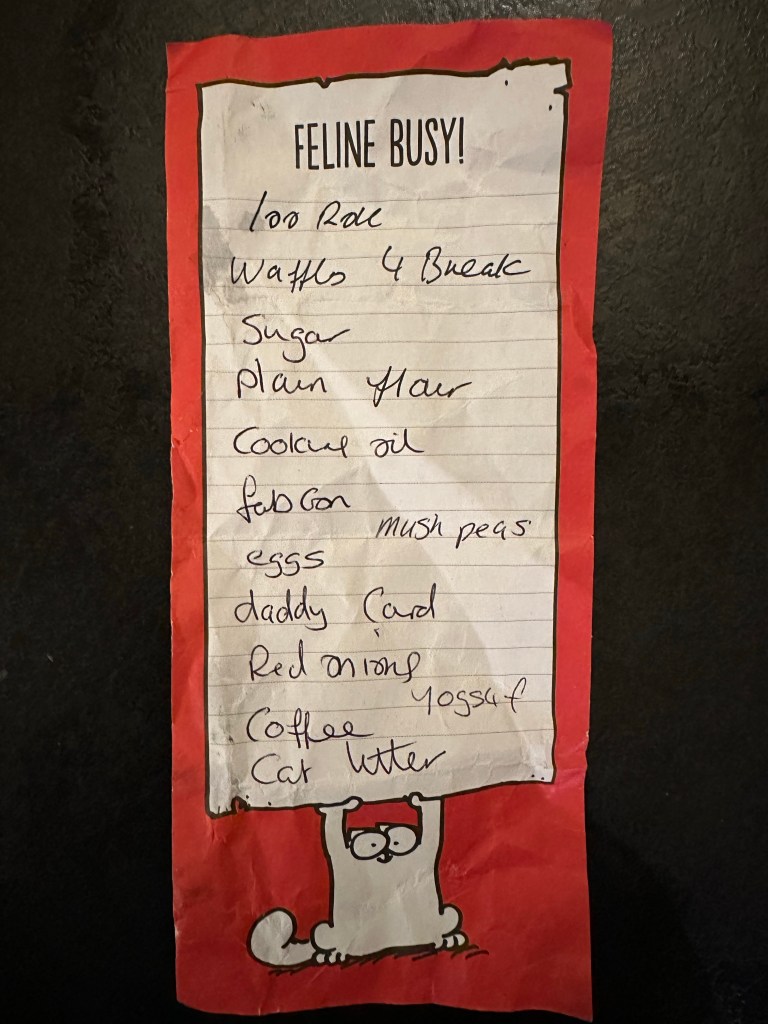 FELINE BUSY!
loo Roll
Waffls 4 Break
Sugar
plain flour
Cooking oil
fab Con
mush peas
eggs
daddy Card
Red onions
Coffee
Cat litter